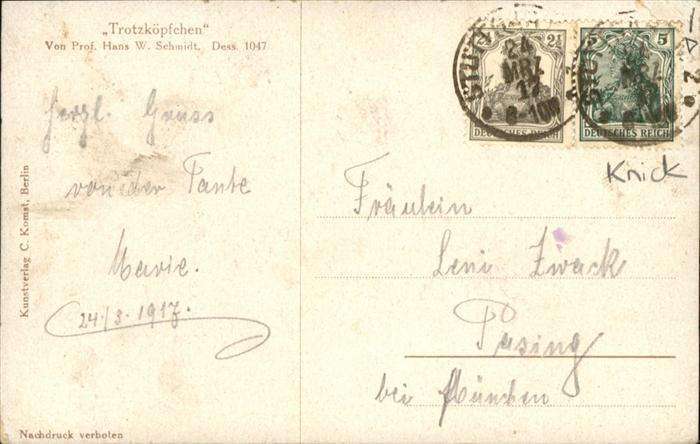 „Trotzköpfchen"
Von Prof. Hans W. Schmidt. Dess. 1047
Herzl. Gruss
von der Tante
Marie.
24/3. 1917.
Kunstverlag C. Komst, Berlin
Nachdruck verboten
STUTTG
24
MRZ
17
8-10
2½
DEUTSCHES REICH
5 5
DEUTSCHES REICH
Knick
Fräulein
Leni Zwack
Pasing
bei München